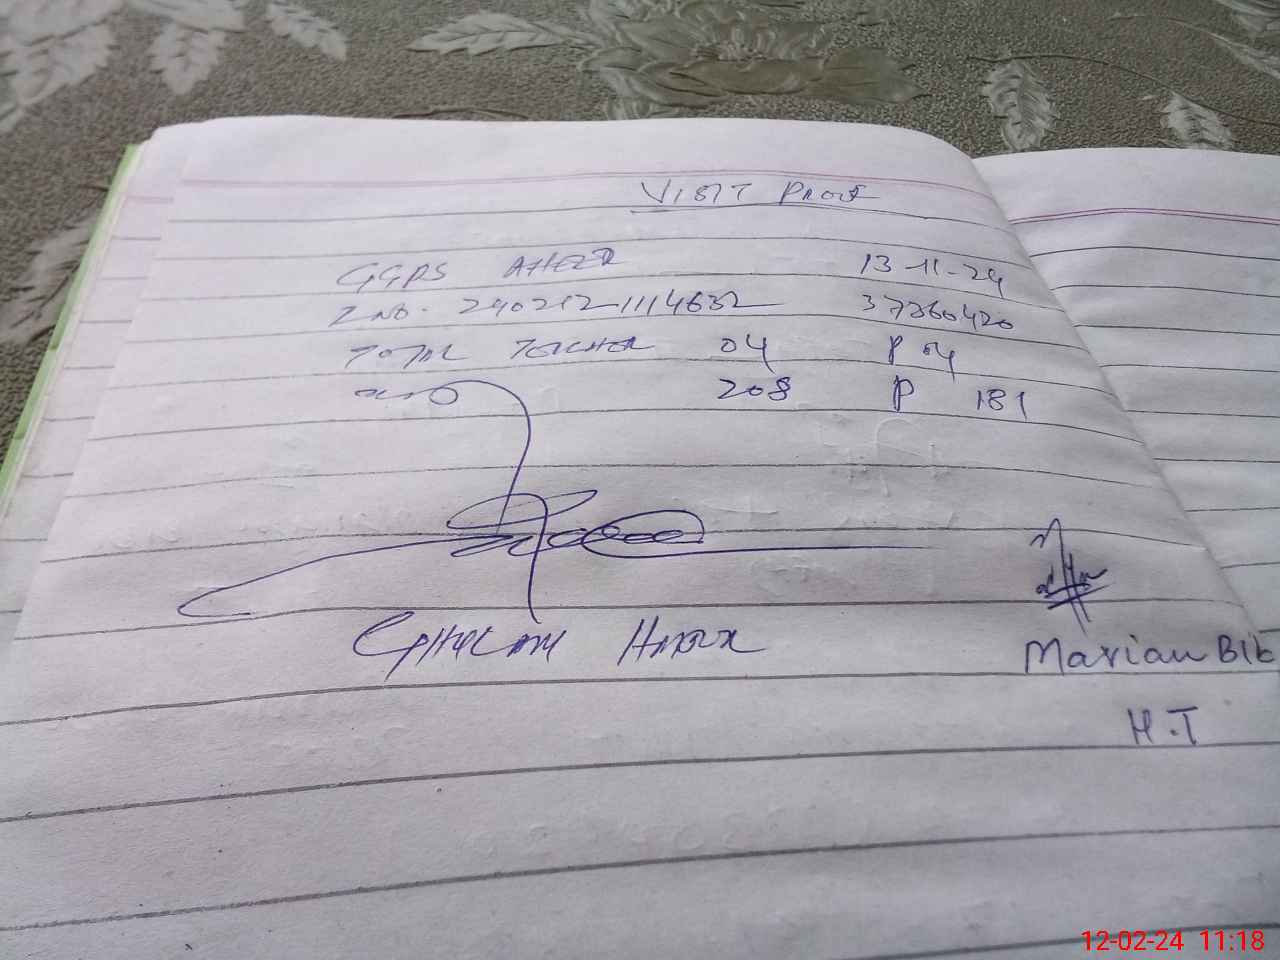 VISIT PROOF
GGPS 13-11-24
Z NO. 240212-1114632 37360420
TOTAL TEACHER 04 P 04
208 P 181
Mariam Bib
H.T
12-02-24 11:18